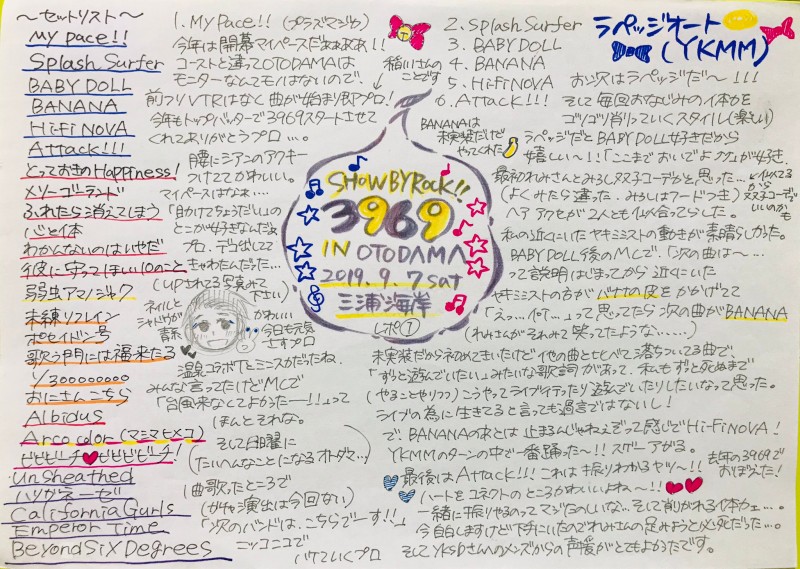 〜セットリスト〜
My pace!!
Splash Surfer
BABY DOLL
BANANA
Hi-Fi NOVA
Attack!!!
とっておきのHappiness!
メリーゴーランド
ふれたら消えてしまう
心と体
わかんないのはいやだ
彼に守ってほしい10のこと
弱虫アマノジャク
未練リフレイン
ポセイドン号
歌う門には福来たる
¥3000000000
おにさんこちら
Albidus
Arco color (マミマヒメコ)
ビビビーチ♥ビビビビーチ!
Unsheathed
ハツガネーゼ
California Gurls
Emperor Time
Beyond Six Degrees
1. My Pace!! (プラズマジカ)
今年は開幕マイペースだねぁぁぁ!!
コーストと違ってOTODAMAは
モニターなんてモノはないので、
前フリVTRはなく曲が始まり即プロ!
今年もトップバッターで3969スタートさせて
くれてありがとうプロ…。
稲川さんの
ことです
腰にシアンのアクキー
つけててかわいい。
マイペースはなぁ…
「助けてちょうだい」の
とこが好きなんだよ
プロ、デコ出ししてて
きゃわたんだった…
(UPされてる写真みて
下さい)
ネイルと
シャドウが
青系
かわいい
今日も元気
さすプロ
温泉コラボTとミニスカだったね、
みんな言ってたけどMCで
「台風来なくてよかったー!!」って
ほんとそれな。
そして日曜に
(たいへんなことになるオトダマ…)
1曲歌ったところで
(ガチャ演出は今回ない)
「次のバンドは、こちらでーす!!」
ニッコニコで
バケていくプロ
SHOW BY ROCK!!
3969
IN OTODAMA
2019.9.7 sat
三浦海岸
レポ①
2. Splash Surfer
3. BABY DOLL
4. BANANA
5. Hi-Fi NOVA
6. Attack!!!
BANANAは
未実装だけど
やってくれた
ラペッジオート
(YKMM)
お次はラペッジだ〜!!!
そして毎回おなじみの体力を
ゴリゴリ削りっていくスタイル(楽しい)
ラペッジだとBABY DOLL好きだから
嬉しい〜!!「ここまでおいでよカカ」が好き。
最初れみさんとみるし双子コーデかと思った…
(よくみたら違った、みるしはフードつき)
ヘアアクセが2人とも似合ってらした。
私の近くにいたヤキミストの動きが素晴らしかった。
BABY DOLL後のMCで、「次の曲は〜…
って説明はじまってから近くにいた
ヤキミストの方がバナナの皮をかかげてて
「えっ…何で…」って思ってたら次の曲がBANANA
(れみさんがそれみて笑ってたような……)
未実装だから初めてきいたけど他の曲と比べて落ちついてる曲で、
「ずっと遊んでいたい」みたいな歌詞があって、私もずっと死ぬまで
(やることやりつつ)こうやってライブ行ったり遊んでいたりしたいなって思った。
ライブの為に生きてると言っても過言ではないし!
で、BANANAのあとは止まるんじゃねぇぞって感じでHi-Fi NOVA!
YKMMのターンの中で一番踊った〜!!スゲーアがる。
最後はAttack!!!これは振りわかるヤツ〜!!
去年の3969で
おぼえた!
ハートをコネクトのところかわいいよね〜!!
一緒に振りやるのってマジたのしいな…そして削がれる体力ェ…。
今白状しますけど下手にいたのでれみさんの足みようと必死だった…。
そしてYKSPさんへのメンズからの声援がとてもよかったです。